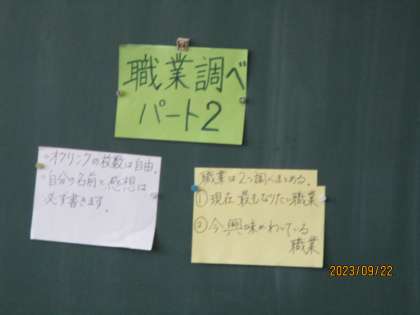 職業調べ
パート2
・オクリンクの枚数は自由。
・自分の名前と感想は
必ず書きます。
職業は2つ調べまとめる。
①現在最もなりたい職業
②今、興味がわいている
職業
2023/09/22